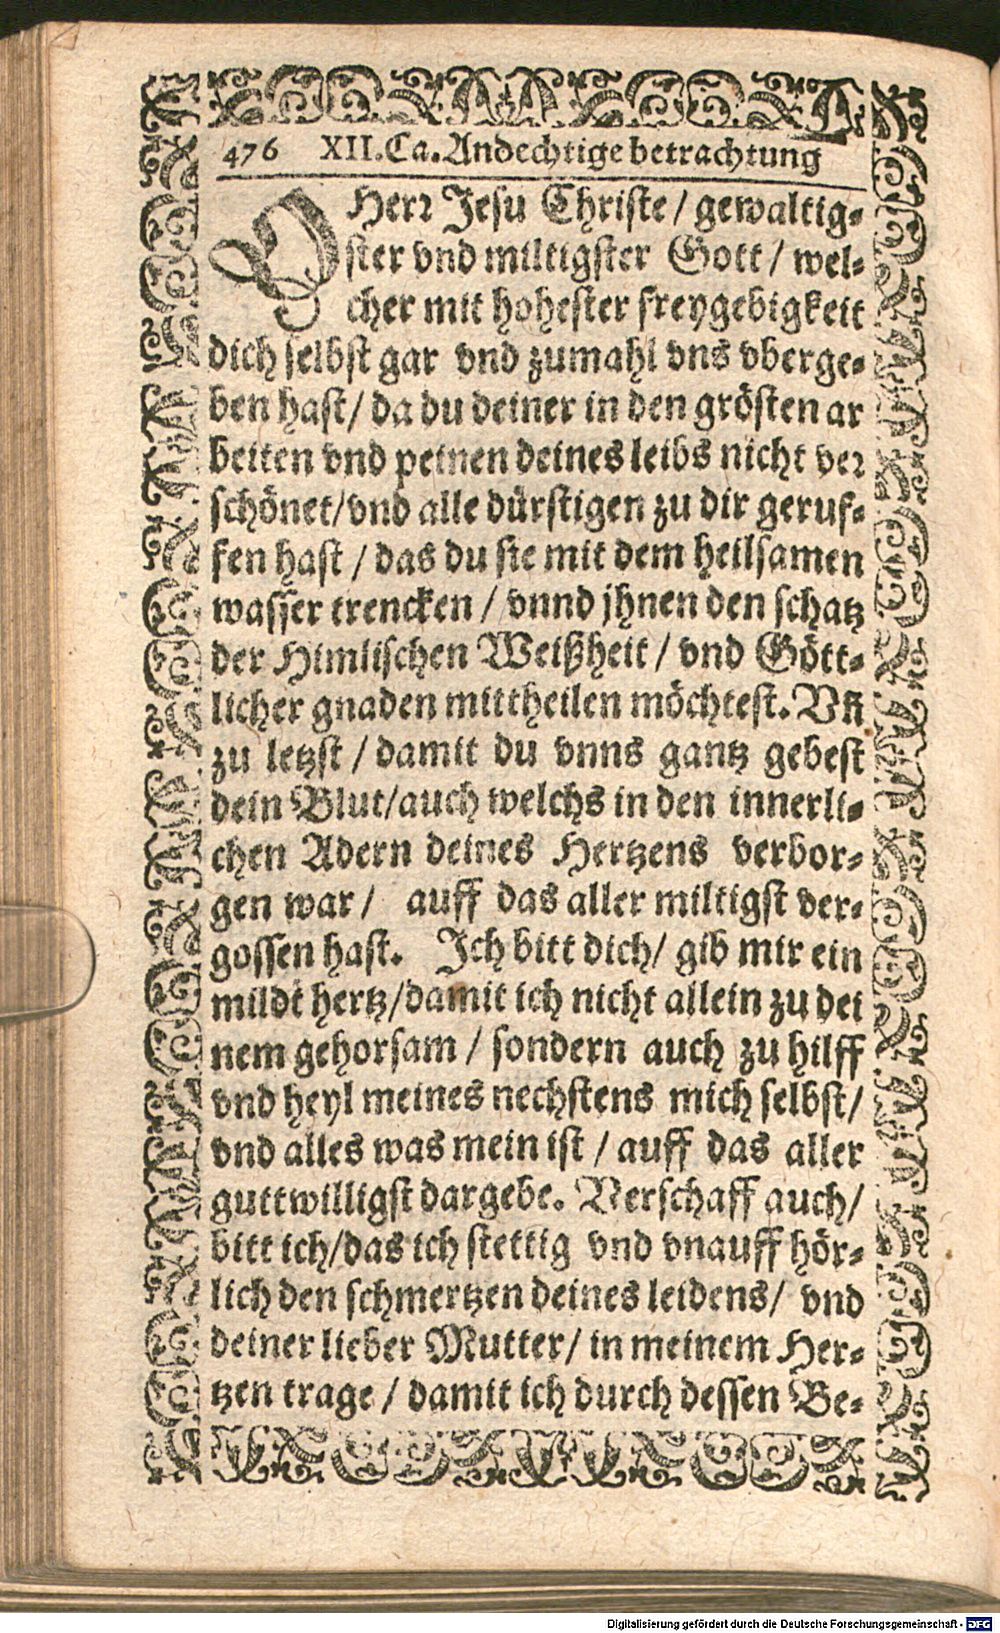 476 XII.Ca. Andechtige betrachtung
O Herꝛ Jesu Christe / gewaltig⸗
ster vnd miltigster Gott / wel⸗
cher mit hohester freygebigkeit
dich selbst gar vnd zumahl vns vberge⸗
ben hast / da du deiner in den grösten ar
beiten vnd peinen deines leibs nicht veꝛ
schönet / vnd alle dürstigen zu dir geruf⸗
fen hast / das du sie mit dem heilsamen
wasser trencken / vnnd jhnen den schatz
der Himlischen Weißheit / vnd Gött⸗
licher gnaden mittheilen möchtest. Vñ
zu letzst / damit du vnns gantz gebest
dein Blut / auch welchs in den innerli⸗
chen Adern deines Hertzens verbor⸗
gen war / auff das aller miltigst ver⸗
gossen hast. Ich bitt dich / gib mir ein
mildt hertz / damit ich nicht allein zu dei
nem gehorsam / sondern auch zu hilff
vnd heyl meines nechstens mich selbst /
vnd alles was mein ist / auff das aller
guttwilligst dargebe. Verschaff auch /
bitt ich / das ich stettig vnd vnauff hör⸗
lich den schmertzen deines leidens / vnd
deiner lieber Mutter / in meinem Her⸗
tzen trage / damit ich durch dessen Be⸗
Digitalisierung gefördert durch die Deutsche Forschungsgemeinschaft - DFG